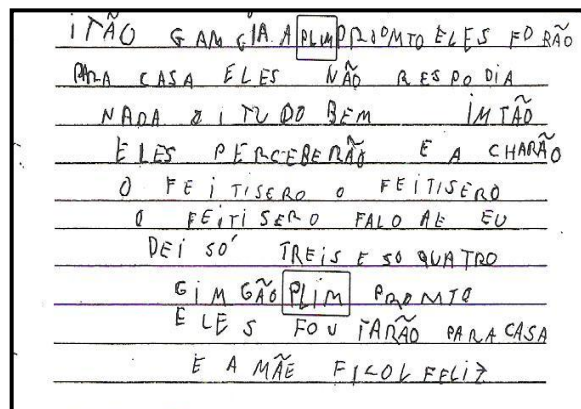 iTÃO GAMGIA A PLIM PROMTO ELES FORÃO
PARA CASA ELES NÃO RESPODIA
NADA OiTUDO BEM IMTÃO
ELES PERCEBERÃO E A CHARÃO
O FEiTISERO O FEITISERO
O FEITISERO FALO AE EU
DEI SÓ TREIS E SO QUATRO
GIMGÃO PLIM PROMTO
ELES FOUTARÃO PARA CASA
E A MÃE FICOL FELIZ